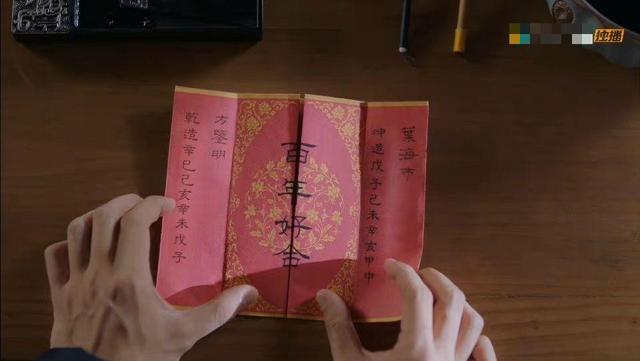 葉海市
坤造戊子己未辛亥甲申
百年好合
方鑒明
乾造辛巳己亥辛未戊子
独播